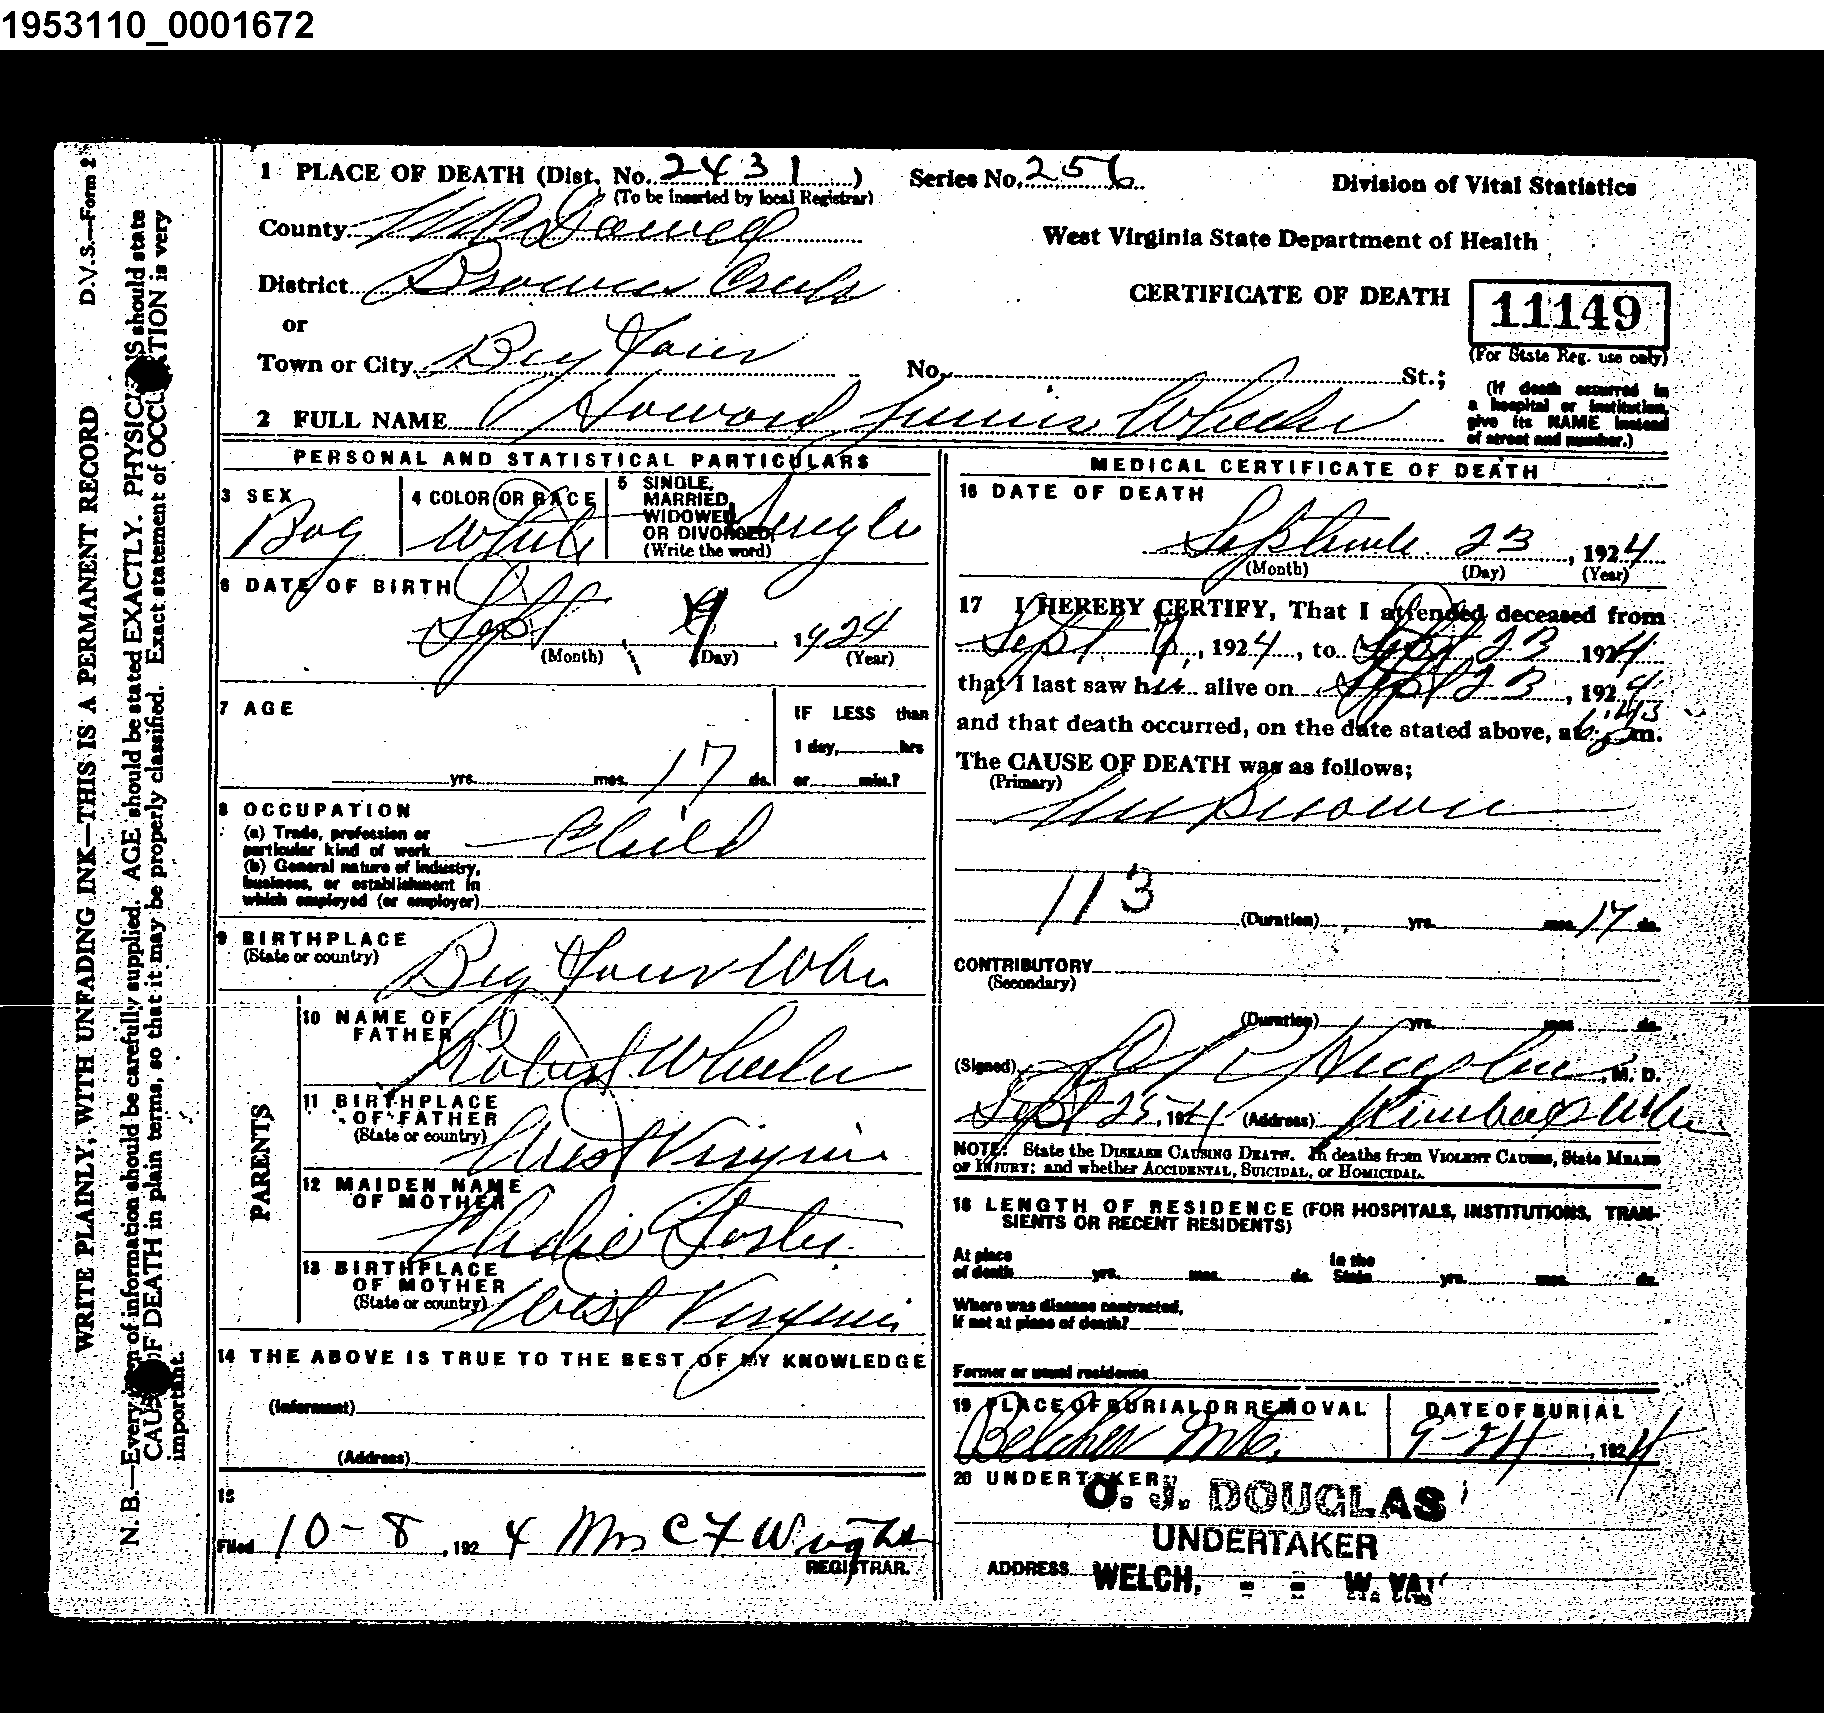 1953110_0001672
D.V.S.—Form 2
WRITE PLAINLY, WITH UNFADING INK—THIS IS A PERMANENT RECORD
N. B.—Every item of information should be carefully supplied. AGE should be stated EXACTLY. PHYSICIANS should state
CAUSE OF DEATH in plain terms, so that it may be properly classified. Exact statement of OCCUPATION is very
important.
1 PLACE OF DEATH (Dist. No. 2431 ) Series No. 256 Division of Vital Statistics
(To be inserted by local Registrar)
County McDowell
West Virginia State Department of Health
District Browns Creek
CERTIFICATE OF DEATH 11149
or
(For State Reg. use only)
Town or City Big Four No. St.;
(If death occurred in
a hospital or institution,
give its NAME instead
of street and number.)
2 FULL NAME Howard Junior Wheeler
PERSONAL AND STATISTICAL PARTICULARS
3 SEX
Boy
4 COLOR OR RACE
White
5 SINGLE,
MARRIED,
WIDOWED,
OR DIVORCED,
(Write the word)
Single
6 DATE OF BIRTH
Sept 1924
(Month) (Day) (Year)
7 AGE
IF LESS than
1 day, hrs
yrs. mos. 17 ds. or min.?
8 OCCUPATION
(a) Trade, profession or
particular kind of work Child
(b) General nature of industry,
business, or establishment in
which employed (or employer)
9 BIRTHPLACE
(State or country)
Big Four W Va
PARENTS
10 NAME OF
FATHER
Robert Wheeler
11 BIRTHPLACE
OF FATHER
(State or country)
West Virginia
12 MAIDEN NAME
OF MOTHER
Foster
13 BIRTHPLACE
OF MOTHER
(State or country)
West Virginia
14 THE ABOVE IS TRUE TO THE BEST OF MY KNOWLEDGE
(Informant)
(Address)
15
Filed 10-8, 1924 Mrs C F Wright
REGISTRAR.
MEDICAL CERTIFICATE OF DEATH
16 DATE OF DEATH
September 23, 1924
(Month) (Day) (Year)
17 I HEREBY CERTIFY, That I attended deceased from
Sept , 1924, to Sept 23 1924
that I last saw him alive on Sept 23, 1924
and that death occurred, on the date stated above, at m.
The CAUSE OF DEATH was as follows;
(Primary)
Unknown
113
(Duration) yrs. mos. 17 ds.
CONTRIBUTORY
(Secondary)
(Duration) yrs. mos. ds.
(Signed) , M. D.
Sept 25, 1924 (Address) Kimball W Va
NOTE: State the DISEASE CAUSING DEATH. In deaths from VIOLENT CAUSES, State MEANS
OF INJURY; and whether ACCIDENTAL, SUICIDAL, or HOMICIDAL.
18 LENGTH OF RESIDENCE (FOR HOSPITALS, INSTITUTIONS, TRAN-
SIENTS OR RECENT RESIDENTS)
At place
of death yrs. mos. ds.
In the
State yrs. mos. ds.
Where was disease contracted,
If not at place of death?
Former or usual residence
19 PLACE OF BURIAL OR REMOVAL
Belcher Mt.
DATE OF BURIAL
9-24, 1924
20 UNDERTAKER
O. J. DOUGLAS
UNDERTAKER
ADDRESS WELCH, - - W. VA.